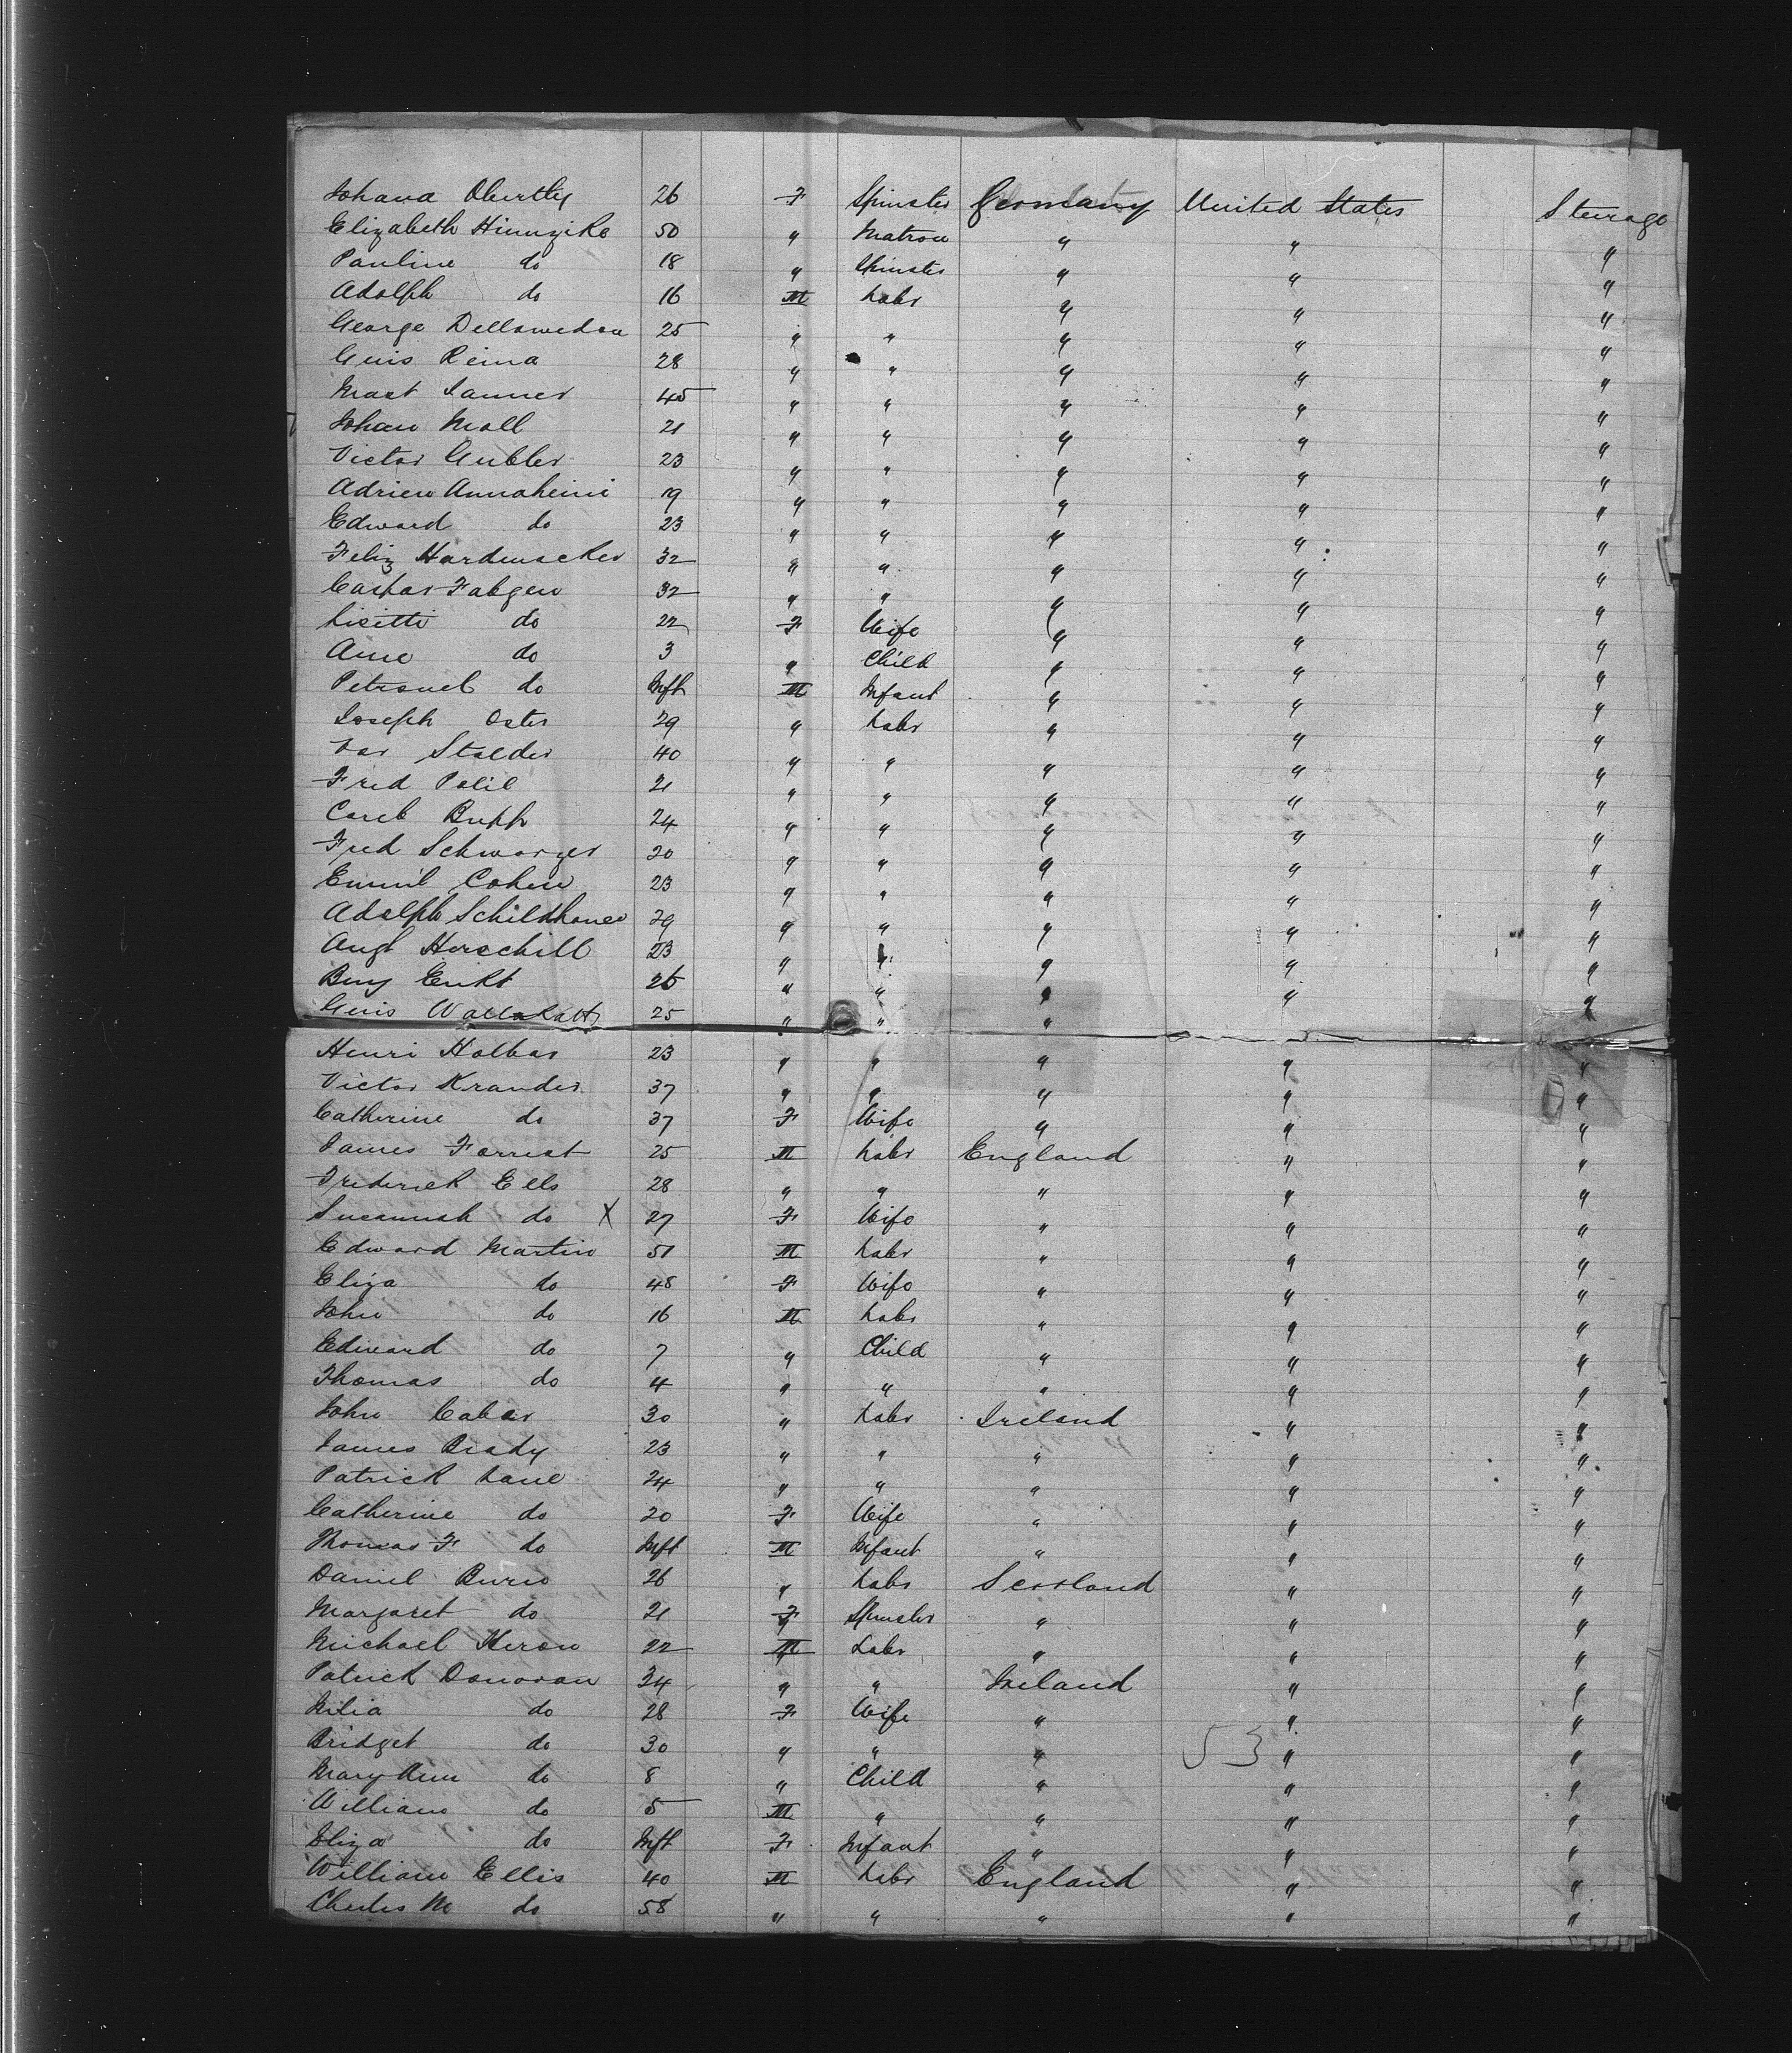 Johana Obertly 26 F Spinster Germany United States Steerage
Elizabeth Hinnzike 50 " Matron " " "
Pauline do 18 " Spinster " " "
Adolph do 16 M Labr " " "
George Dellomedon 25 " " " " "
Guis Reina 28 " " " " "
Mart Janner 45 " " " " "
Johan Moll 21 " " " " "
Victor Gubler 23 " " " " "
Adrien Annaheim 19 " " " " "
Edward do 23 " " " " "
Feliz Hardmacker 32 " " " " "
Caspar Fabgen 32 " " " " "
Lisette do 22 F Wife " " "
Aine do 3 " Child " " "
Petronel do Inft M Infant " " "
Joseph Oster 29 " Labr " " "
Stalder 40 " " " " "
Fred Polil 21 " " " " "
Carel Bupp 24 " " " " "
Fred Schwarzer 20 " " " " "
Emmil Cohen 23 " " " " "
Adolph Schildhauer 29 " " " " "
Augt Horschill 23 " " " " "
Benj Enikt 26 " " " " "
Guis 25 " " " " "
Henri Holbar 23 " " " " "
Victor Krander 37 " " " " "
Catherine do 37 F Wife " " "
James Forrest 25 M Labr England " "
Frederick Ells 28 " " " " "
Susannah do X 27 F Wife " " "
Edward Martin 51 M Labr " " "
Eliza do 48 F Wife " " "
John do 16 M Labr " " "
Edward do 7 " Child " " "
Thomas do 4 " " " " "
John Cabar 30 " Labr Ireland " "
James Brady 23 " " " " "
Patrick Lane 24 " " " " "
Catherine do 20 F Wife " " "
Thomas F do Inft M Infant " " "
Daniel Burio 26 " Labr Scotland " "
Margaret do 21 F Spinster " " "
Michael Heron 22 M Labr " " "
Patrick Donovan 34 " " Ireland " "
do 28 F Wife " " "
Bridget do 30 " " " 53 " "
Mary Ann do 8 " Child " " "
William do 5 M " " " "
Eliza do Inft F Infant " " "
William Ellis 40 M Labr England " "
Charles M do 58 " " " " "